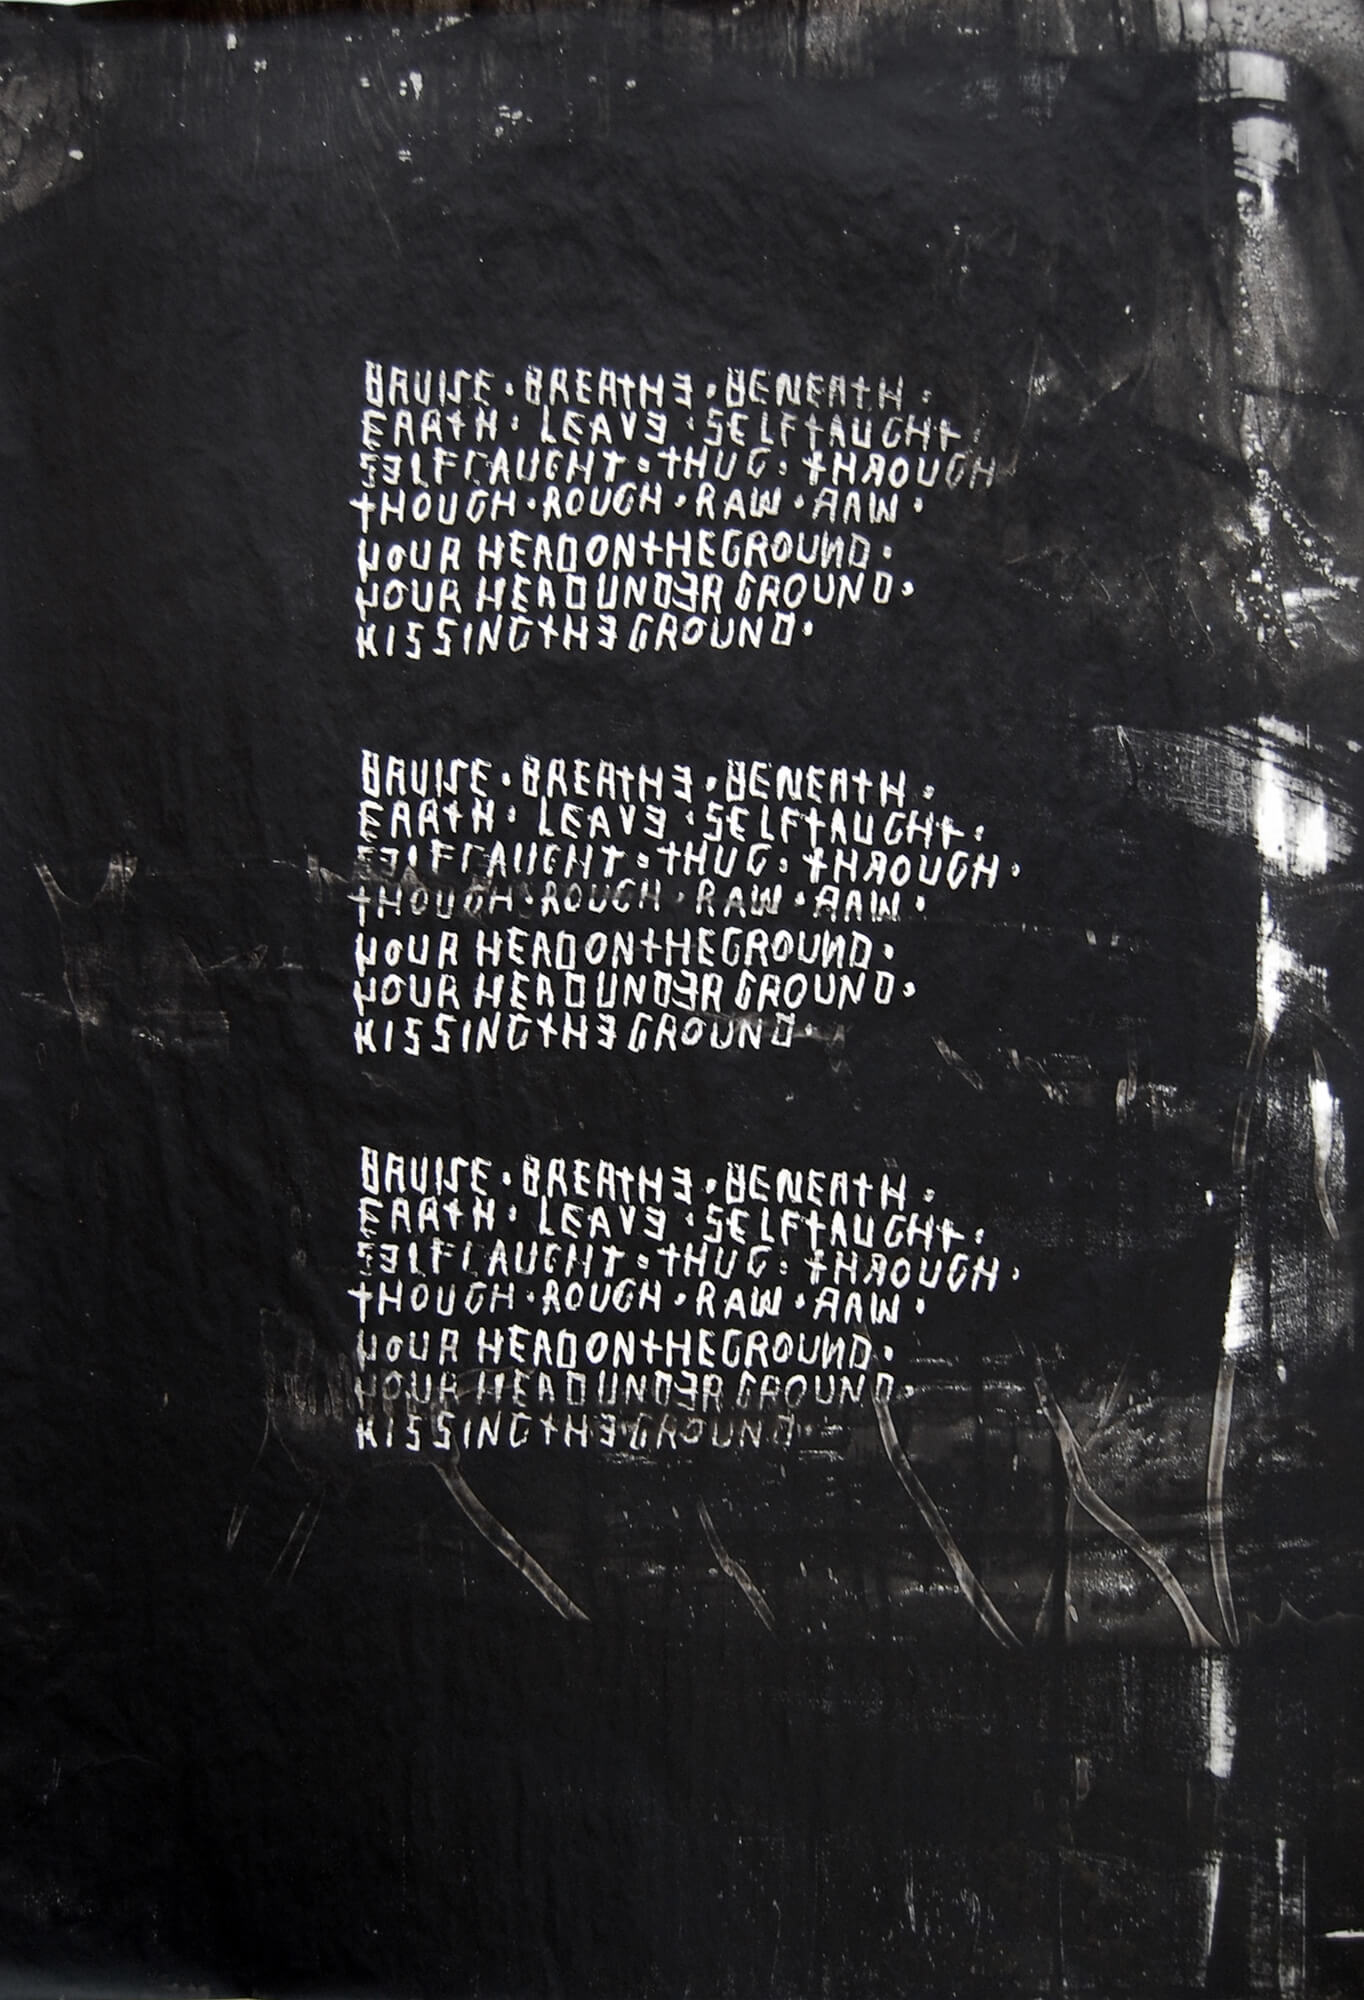 BRUISE · BREATHE · BENEATH :
EARTH : LEAVE · SELFTAUGHT :
SELFCAUGHT : THUG : THROUGH
THOUGH · ROUGH · RAW · RAW ·
YOUR HEADONTHEGROUND ·
YOUR HEADUNDERGROUND ·
KISSINGTHEGROUND ·
BRUISE · BREATHE · BENEATH :
EARTH : LEAVE · SELFTAUGHT :
SELFCAUGHT : THUG : THROUGH ·
THOUGH · ROUGH · RAW · RAW ·
YOUR HEADONTHEGROUND ·
YOUR HEADUNDERGROUND ·
KISSINGTHEGROUND ·
BRUISE · BREATHE · BENEATH :
EARTH : LEAVE · SELFTAUGHT :
SELFCAUGHT : THUG : THROUGH ·
THOUGH · ROUGH · RAW · RAW ·
YOUR HEADONTHEGROUND ·
YOUR HEADUNDERGROUND ·
KISSINGTHEGROUND ·